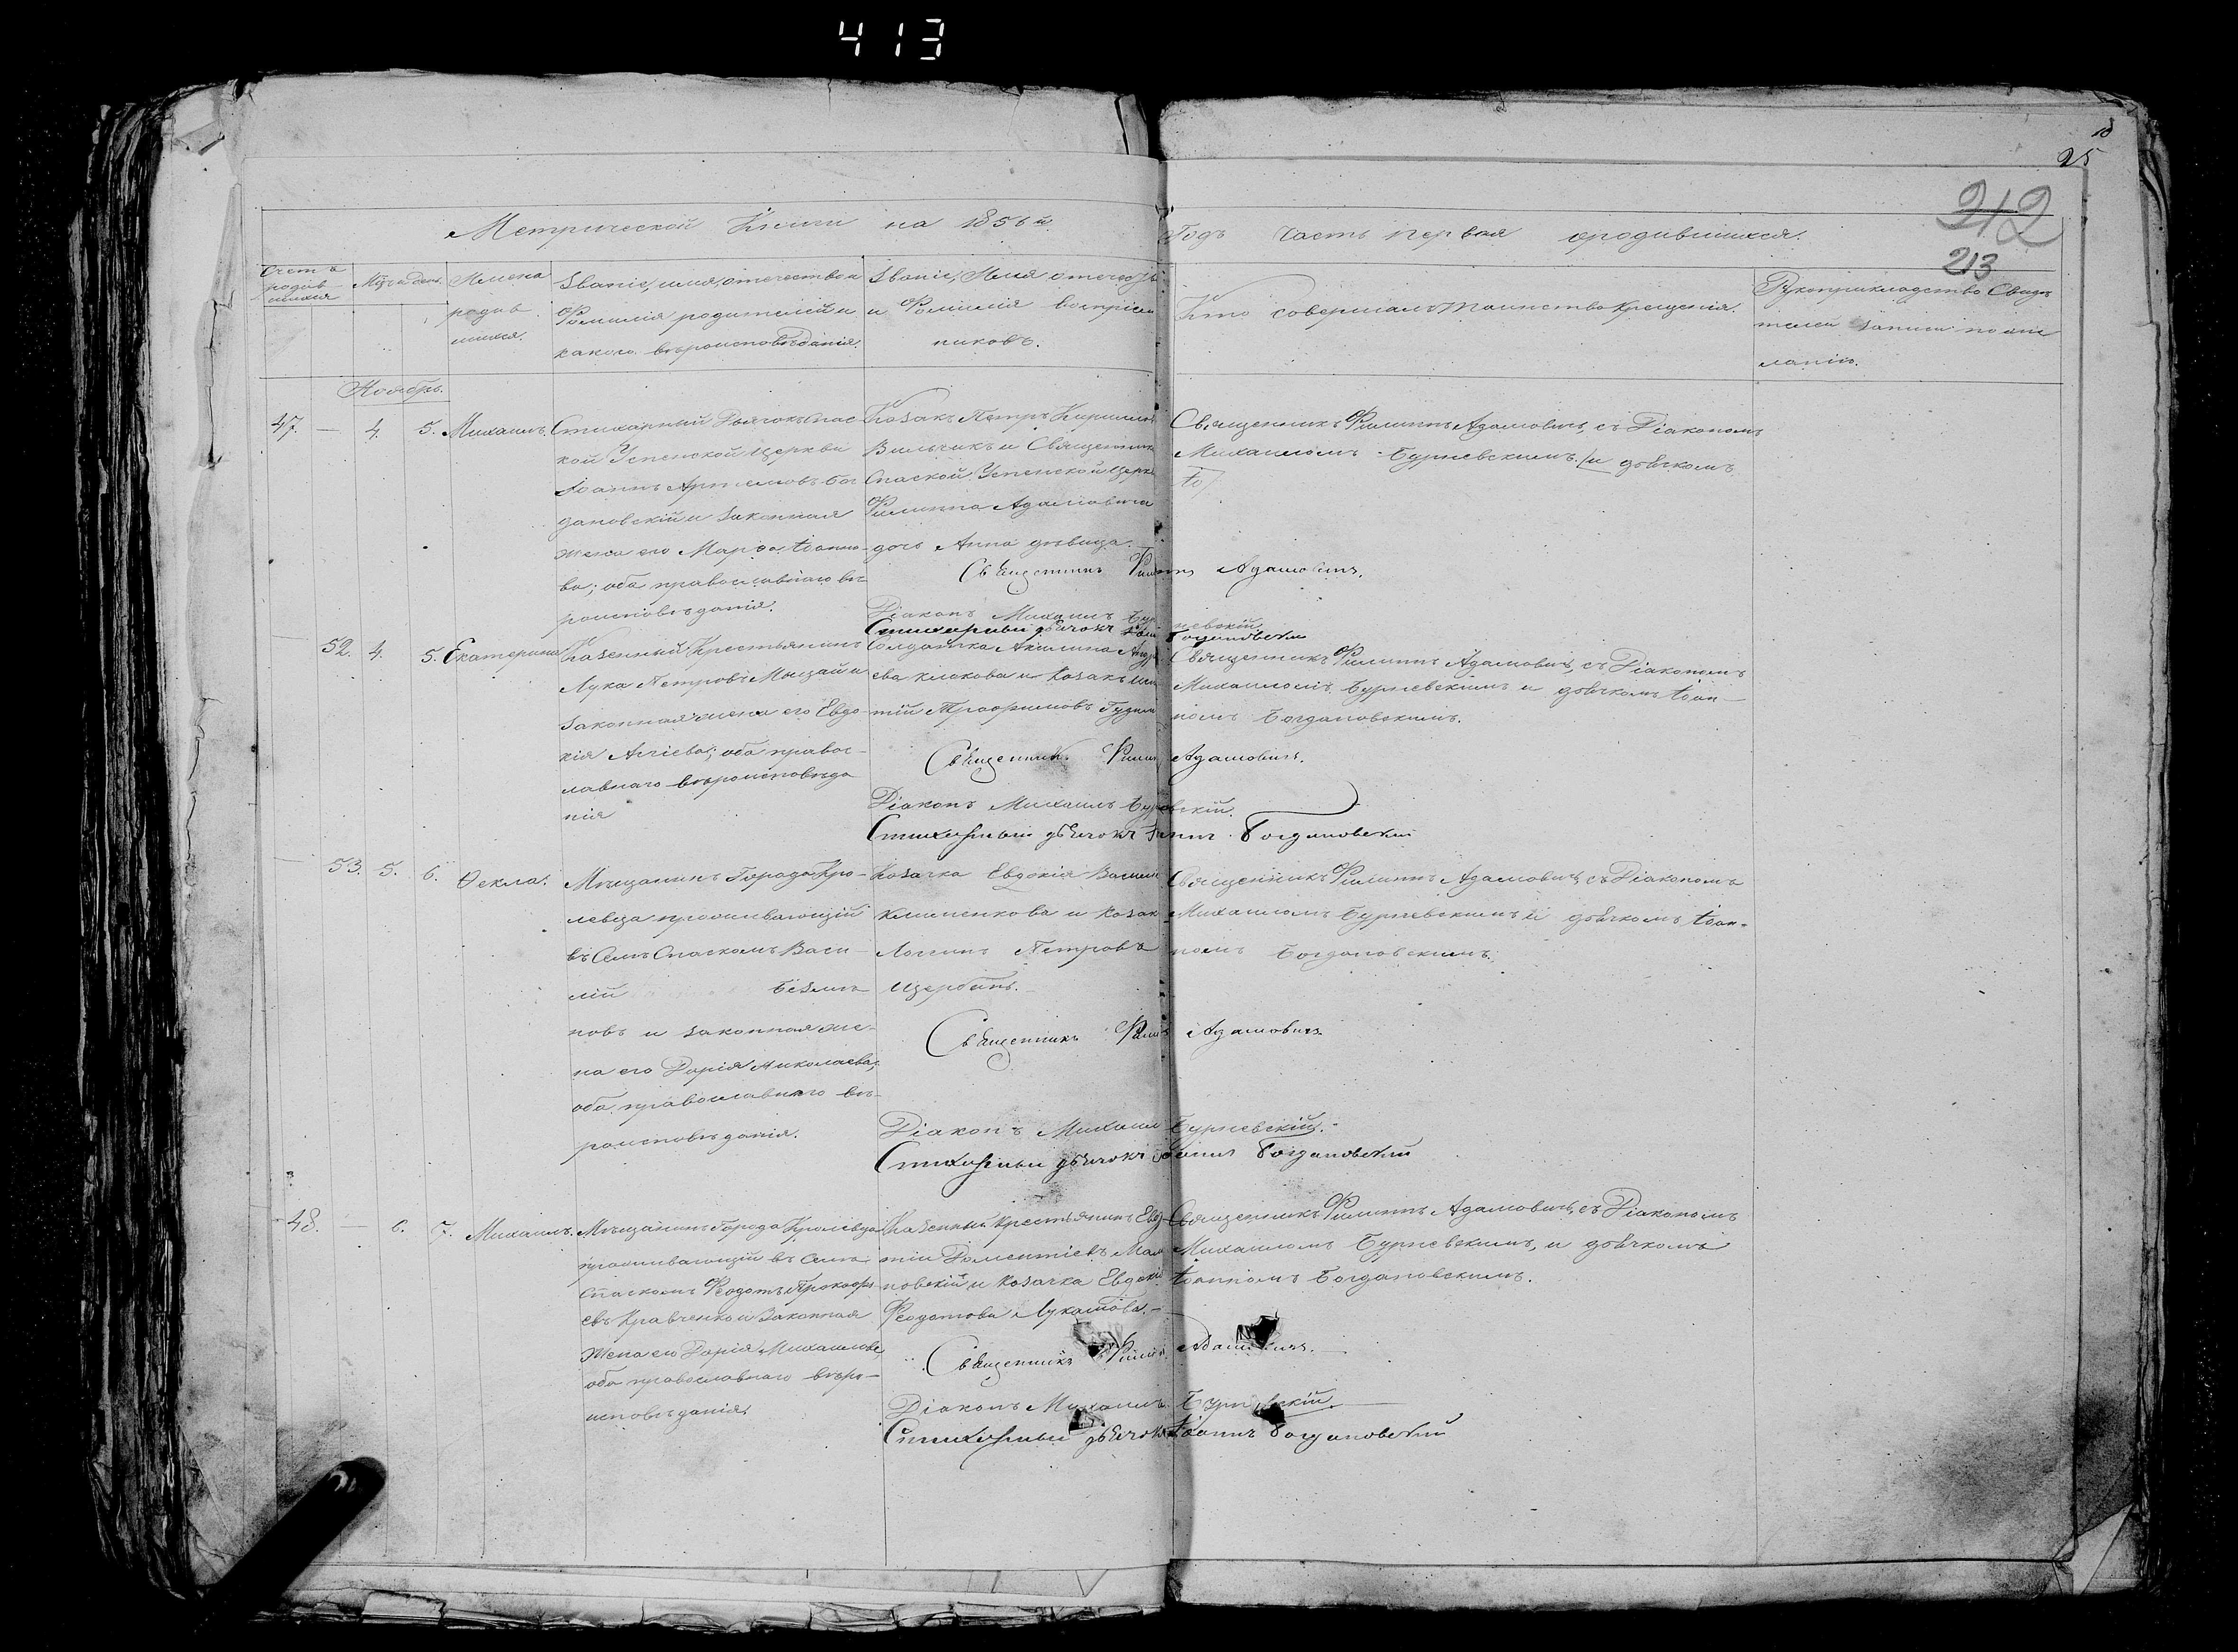 413
10
25
212
213
Метрической Книги на 1856й Годъ Часть первая ородившихся.
Счетъ родив-шихся
Мѣс: и день.
Имена родив шихся.
Званіе, имя, отечество и Фамилія родителей и какого вѣроисповѣданія.
Званіе, Имя отечество и Фамилія воспріем никовъ.
Кто совершалъ таинство крещенія.
Рукоприкладство свидѣ телей записи по же ланію.
Ноябрь.
47. — 4. 5. Михаилъ.
Стихарный Дьячокъ Спас
кой Успенской Церкви
Іоаннъ Артемовъ Бог
дановскій и законная
жена его Марѳа Іоанно-
ва; оба православнаго вѣ
роисповѣданія.
Козакъ Петръ Кирилловъ
Вильчикъ и Священника
Спаской Успенской Церкв
Филиппа Адамовича
дочь Анна дѣвица.
Священникъ Филиппъ Адамовичъ, съ Діакономъ
Михаиломъ Бурчевскимъ. и дѣчкомъ
Священникъ Филиппъ Адамовичъ.
Діаконъ Михаилъ Бурчевскій.
Стихарный дѣячокъ Іоаннъ Богдановскій
52. 4. 5. Екатерина
Казенный Крестьянинъ
Лука Петровъ и
законная жена его Евдо-
кія оба правос-
лавнаго вѣроисповѣда
нія
Солдатка Акилина Андре
ева Клокова и Козакъ
тій Трофимовъ
Священникъ Филиппъ Адамовичъ, съ Діакономъ
Михаиломъ Бурчевскимъ и дѣчкомъ Іоан-
номъ Богдановскимъ.
Священникъ Филиппъ Адамовичъ.
Діаконъ Михаилъ Бурчевскій.
Стихарный дѣячокъ Іоаннъ Богдановскій
53. 5. 6. Ѳекла.
Мѣщанинъ Города Кро-
левца проживающій
въ Селѣ Спаскомъ Васи-
лій Безъимя
новъ и законная же-
на его Дарія Николаева,
оба православнаго вѣ-
роисповѣданія.
Козачка Евдокія Васили
Клименкова и Козакъ
Логинъ Петровъ
Щербакъ.
Священникъ Филиппъ Адамовичъ, съ Діакономъ
Михаиломъ Бурчевскимъ и дѣчкомъ Іоан-
номъ Богдановскимъ.
Священникъ Филиппъ Адамовичъ
Діаконъ Михаилъ Бурчевскій.
Стихарный дѣячокъ Іоаннъ Богдановскій
48. — 6. 7. Михаилъ.
Мѣщанинъ Города Кролевца
проживающій въ Селѣ
Спаскомъ Феодотъ Прокофі
евъ Кравченко и Законная
Жена его Дарія Михаилова,
оба православнаго вѣро-
исповѣданія.
Казенный Крестьянинъ Евдо
новскій и Козачка Евдокія
Феодотова Лукашова.
Священникъ Филиппъ Адамовичъ, съ Діакономъ
Михаиломъ Бурчевскимъ, и дѣчкомъ
Іоанномъ Богдановскимъ.
Священникъ Филиппъ Адамовичъ.
Діаконъ Михаилъ Бурчевскій.
Стихарный дѣячокъ Іоаннъ Богдановскій